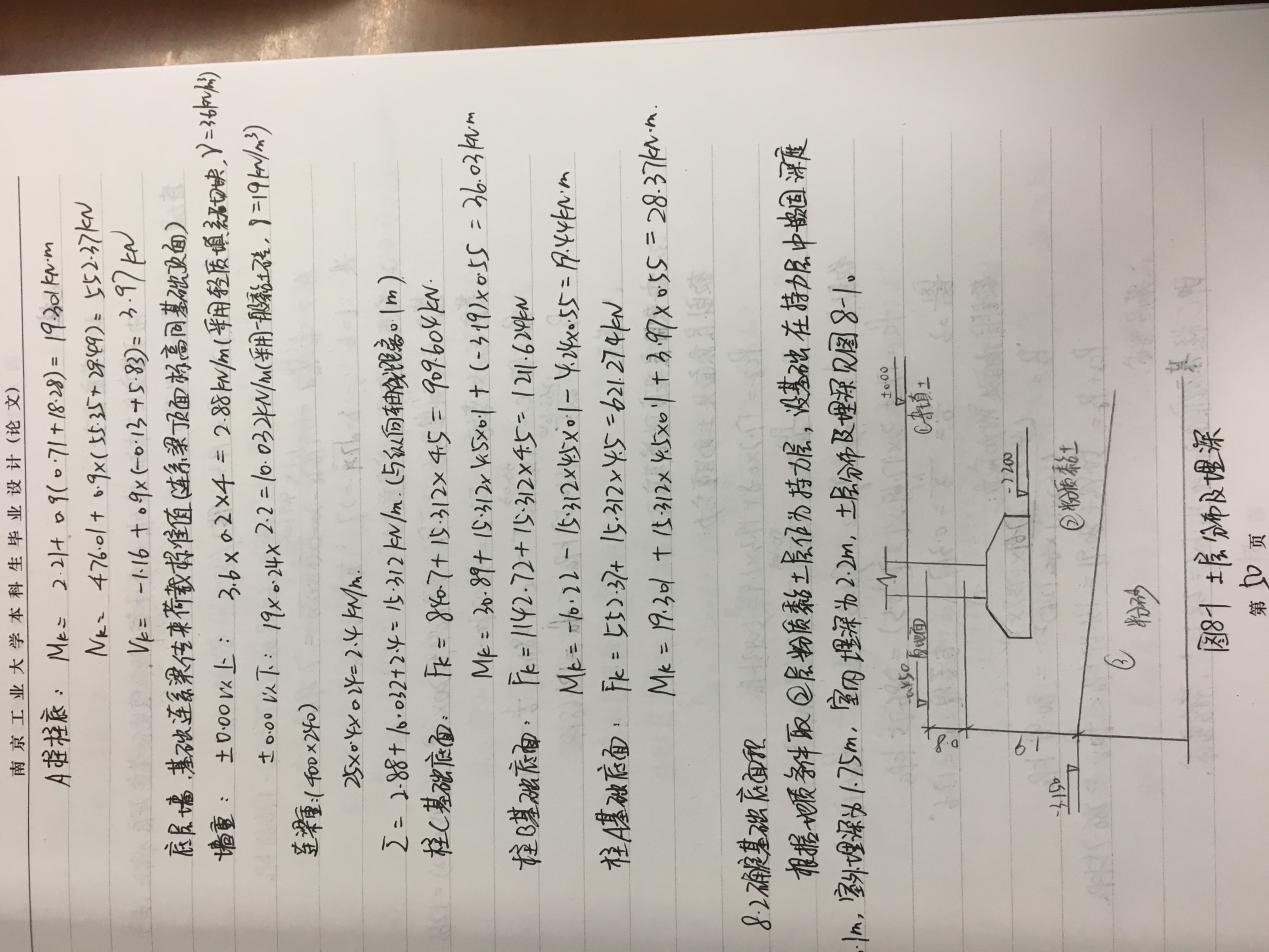 南京工业大学本科生毕业设计(论文)
A柱柱底: Mk= 2.21+0.9(0.71+18.28)=19.301kN·m
Nk= 476.01+0.9×(55.35+29.49)=552.37kN
Vk=-1.16+0.9×(-0.13+5.83)=3.97kN
底层墙、基础连系梁传来荷载标准值(连系梁顶面标高同基础顶面)
墙重: ±0.00以上: 3.6×0.2×4=2.88kN/m(采用轻质填充砌块,γ=3.6kN/m³)
±0.00以下: 19×0.24×2.2=10.032kN/m(采用一般黏土砖,γ=19kN/m³)
连梁重:(400×240)
25×0.4×0.24=2.4kN/m.
Σ=2.88+10.032+2.4=15.312kN/m.(与纵向轴线距离0.1m)
柱C基础底面: Fk=840.7+15.312×4.5=909.604kN.
Mk=30.89+15.312×4.5×0.1+(-3.19)×0.55=36.03kN·m
柱B基础底面: Fk=1142.72+15.312×4.5=1211.624kN
Mk=-16.22-15.312×4.5×0.1-4.24×0.55=19.44kN·m
柱A基础底面: Fk=552.37+15.312×4.5=621.274kN
Mk=19.301+15.312×4.5×0.1+3.97×0.55=28.37kN·m.
8.2确定基础底面积
根据地质条件取②层粉质黏土层作为持力层,设基础在持力层中嵌固深度
.1m,室外埋深为1.75m,室内埋深为2.2m,土层分布及埋深见图8-1。
±0.00
-0.450
①杂填土
-2.200
0.8
②粉质黏土
1.9
-3.150
③
粉砂
图8-1 土层分布及埋深
第 50 页